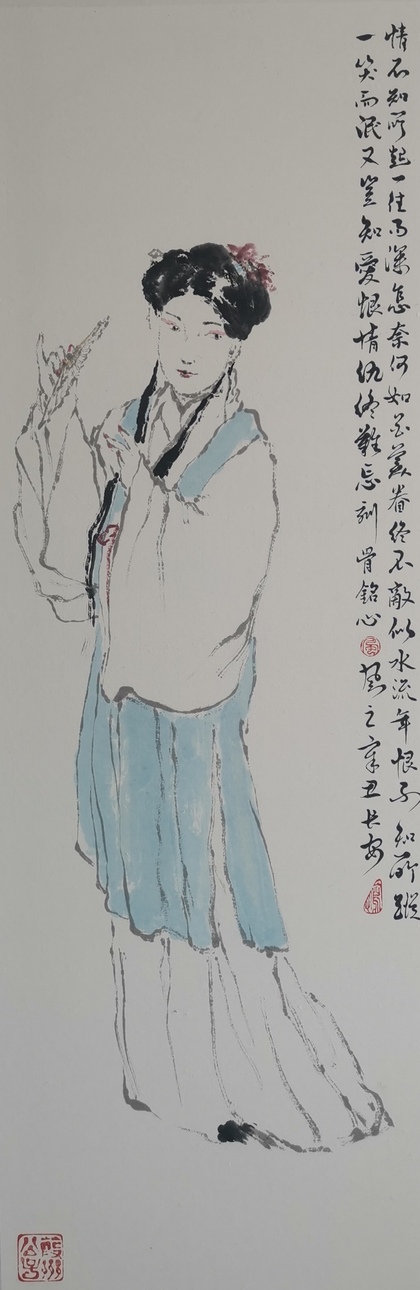 情不知所起一往而深怎奈何如花美眷终不敵似水流年恨不知所蹤
一笑而泯又豈知愛恨情仇終難忘刻骨銘心
之辛丑長安